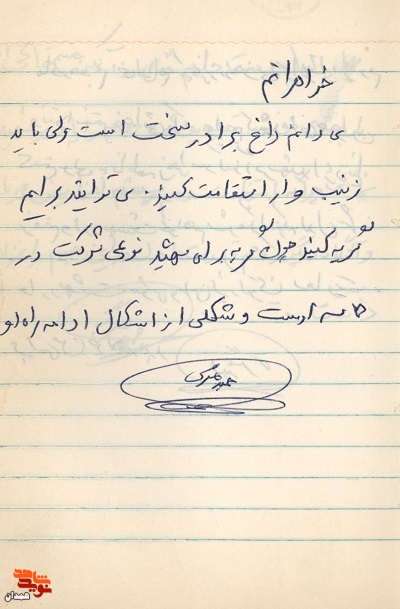 خواهرانم
می دانم داغ برادر سخت است ولی باید
زینب وار استقامت کنید. می توانید برایم
گریه کنید چون گریه برای شهید نوعی شرکت در
حماسه اوست و شکلی از اشکال ادامه راه او
شاهد
نوید
همدان